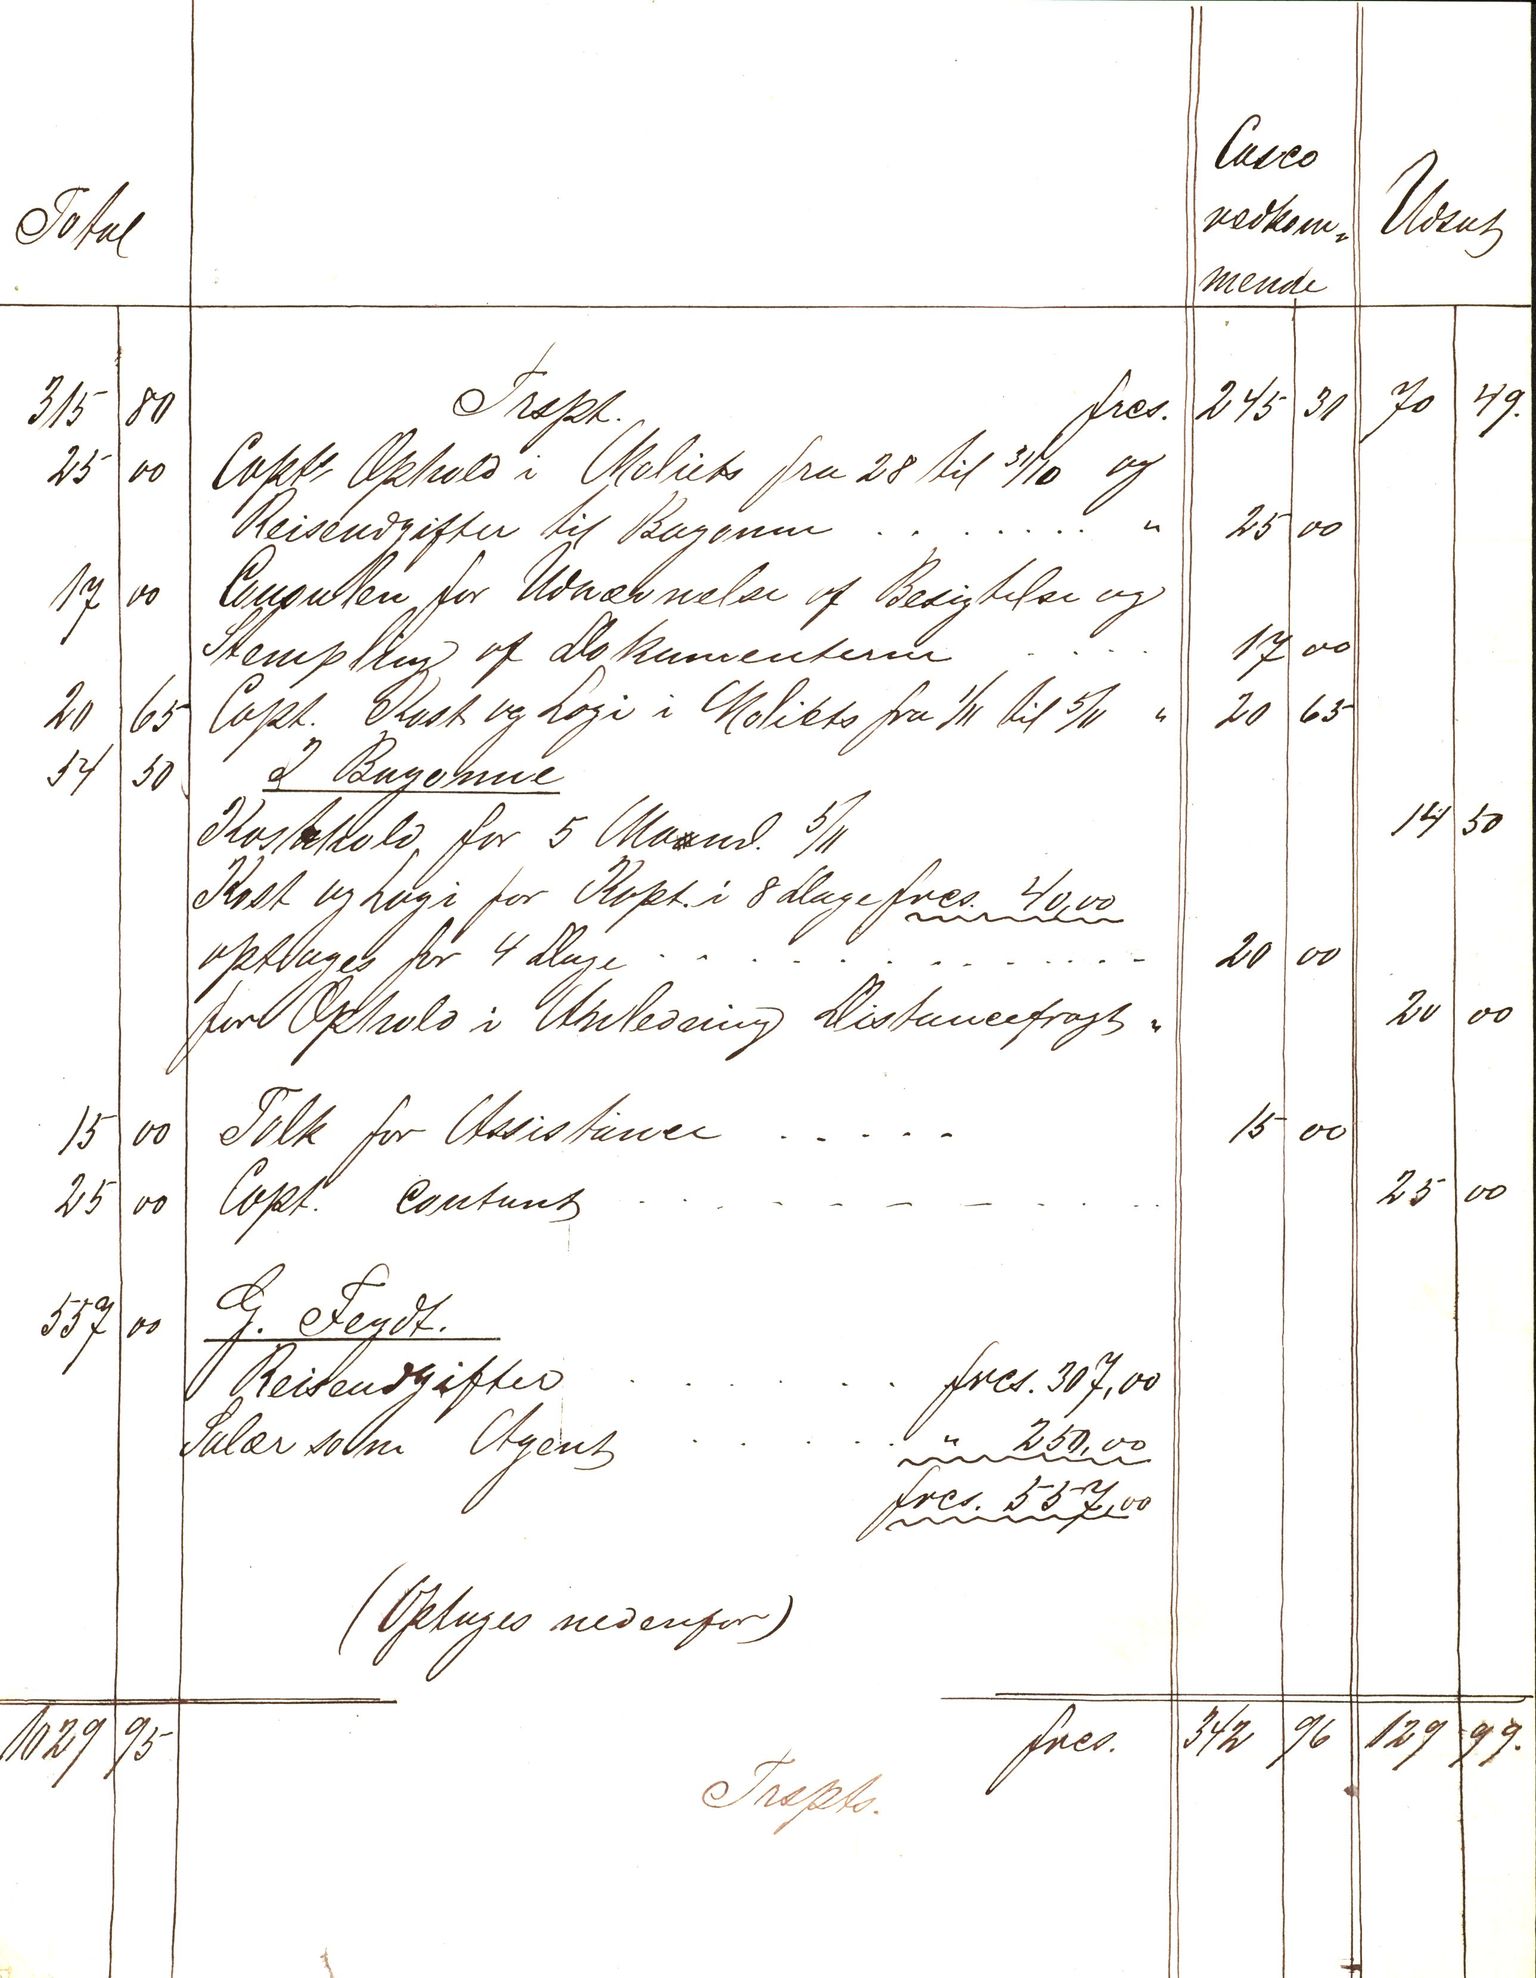 Total
Casco
vedkom-
mende
Udsat
315 80 Trspt. frcs. 245 31 70 49.
25 00 Capt's Ophold i Moliets fra 28 til 31/10 og
Reiseudgifter til Bayonne . . . . . . . . " 25 00
17 00 Consulen for Udnævnelse af Besigtelse og
Stempling af Dokumenterne . . . . 17 00
20 65 Capt. Kost og Logi i Moliets fra 1/11 til 5/11 " 20 65
54 50 I Bayonne
Kosthold for 5 Mand. 5/11 14 50
Kost og Logi for Kapt. i 8 Dage frcs. 40,00
optages for 4 Dage . . . . . . . . . . . . . 20 00
for Ophold i Anledning Distancefragt " 20 00
15 00 Tolk for Assistance . . . . . 15 00
25 00 Capt. contant . . . . . . . . . . . 25 00
557 00 G. Feydt.
Reiseudgifter . . . . . . . frcs. 307,00
Salær som Agent . . . . . . " 250,00
frcs. 557,00
(Optages nedenfor)
1029 95 frcs. 342 96 129 99.
Trspts.